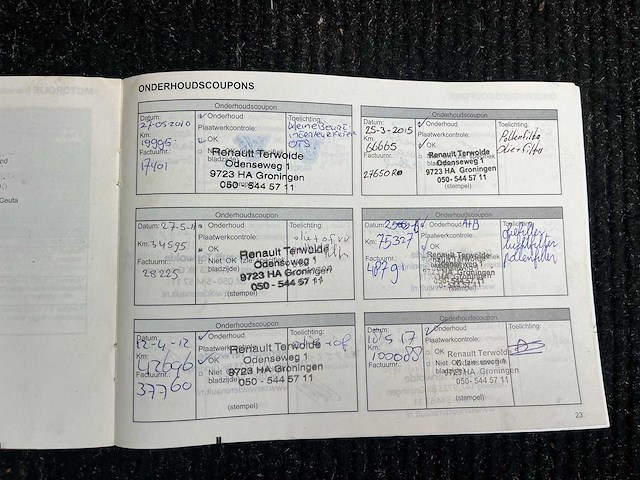 ONDERHOUDSCOUPONS
Onderhoudscoupon
Datum:
27-05-2010
Km:
19995
Factuurnr.:
17401
Onderhoud
Plaatwerkcontrole:
OK
Niet OK
bladzijde
Renault Terwolde
Odenseweg 1
9723 HA Groningen
050- 544 57 11
Toelichting:
kleine Beurt
interieurfilter
Onderhoudscoupon
Datum:
25-3-2015
Km:
66665
Factuurnr.:
27650
Onderhoud
Plaatwerkcontrole:
OK
Renault Terwolde
Odenseweg 1
9723 HA Groningen
050- 544 57 11
(stempel)
Toelichting:
Pollenfilter
oliefilter
Onderhoudscoupon
Datum: 27-5-11
Km: 34595
Factuurnr.:
28225
Onderhoud
Plaatwerkcontrole:
OK
Niet OK (zie
bladzijde)
Renault Terwolde
Odenseweg 1
9723 HA Groningen
050 - 544 57 11
(stempel)
Toelichting:
Onderhoudscoupon
Datum:
Km: 75327
Factuurnr.:
Onderhoud A+B
Plaatwerkcontrole:
OK
Renault Terwolde
Odenseweg 1
9723 HA Groningen
050 - 544 57 11
(stempel)
Toelichting:
oliefilter
luchtfilter
pollenfilter
Onderhoudscoupon
Datum:
12-4-12
Km:
42696
Factuurnr.:
37760
Onderhoud
Plaatwerkcontrole:
OK
Niet
bladzijde
Renault Terwolde
Odenseweg 1
9723 HA Groningen
050 - 544 57 11
(stempel)
Toelichting:
Onderhoudscoupon
Datum:
10/5 17
Km:
100088
Factuurnr.:
Onderhoud
Plaatwerkcontrole:
OK
Niet
bladzijde
Renault Terwolde
Odenseweg 1
9723 HA Groningen
050 - 544 57 11
(stempel)
Toelichting:
23
Ceuta